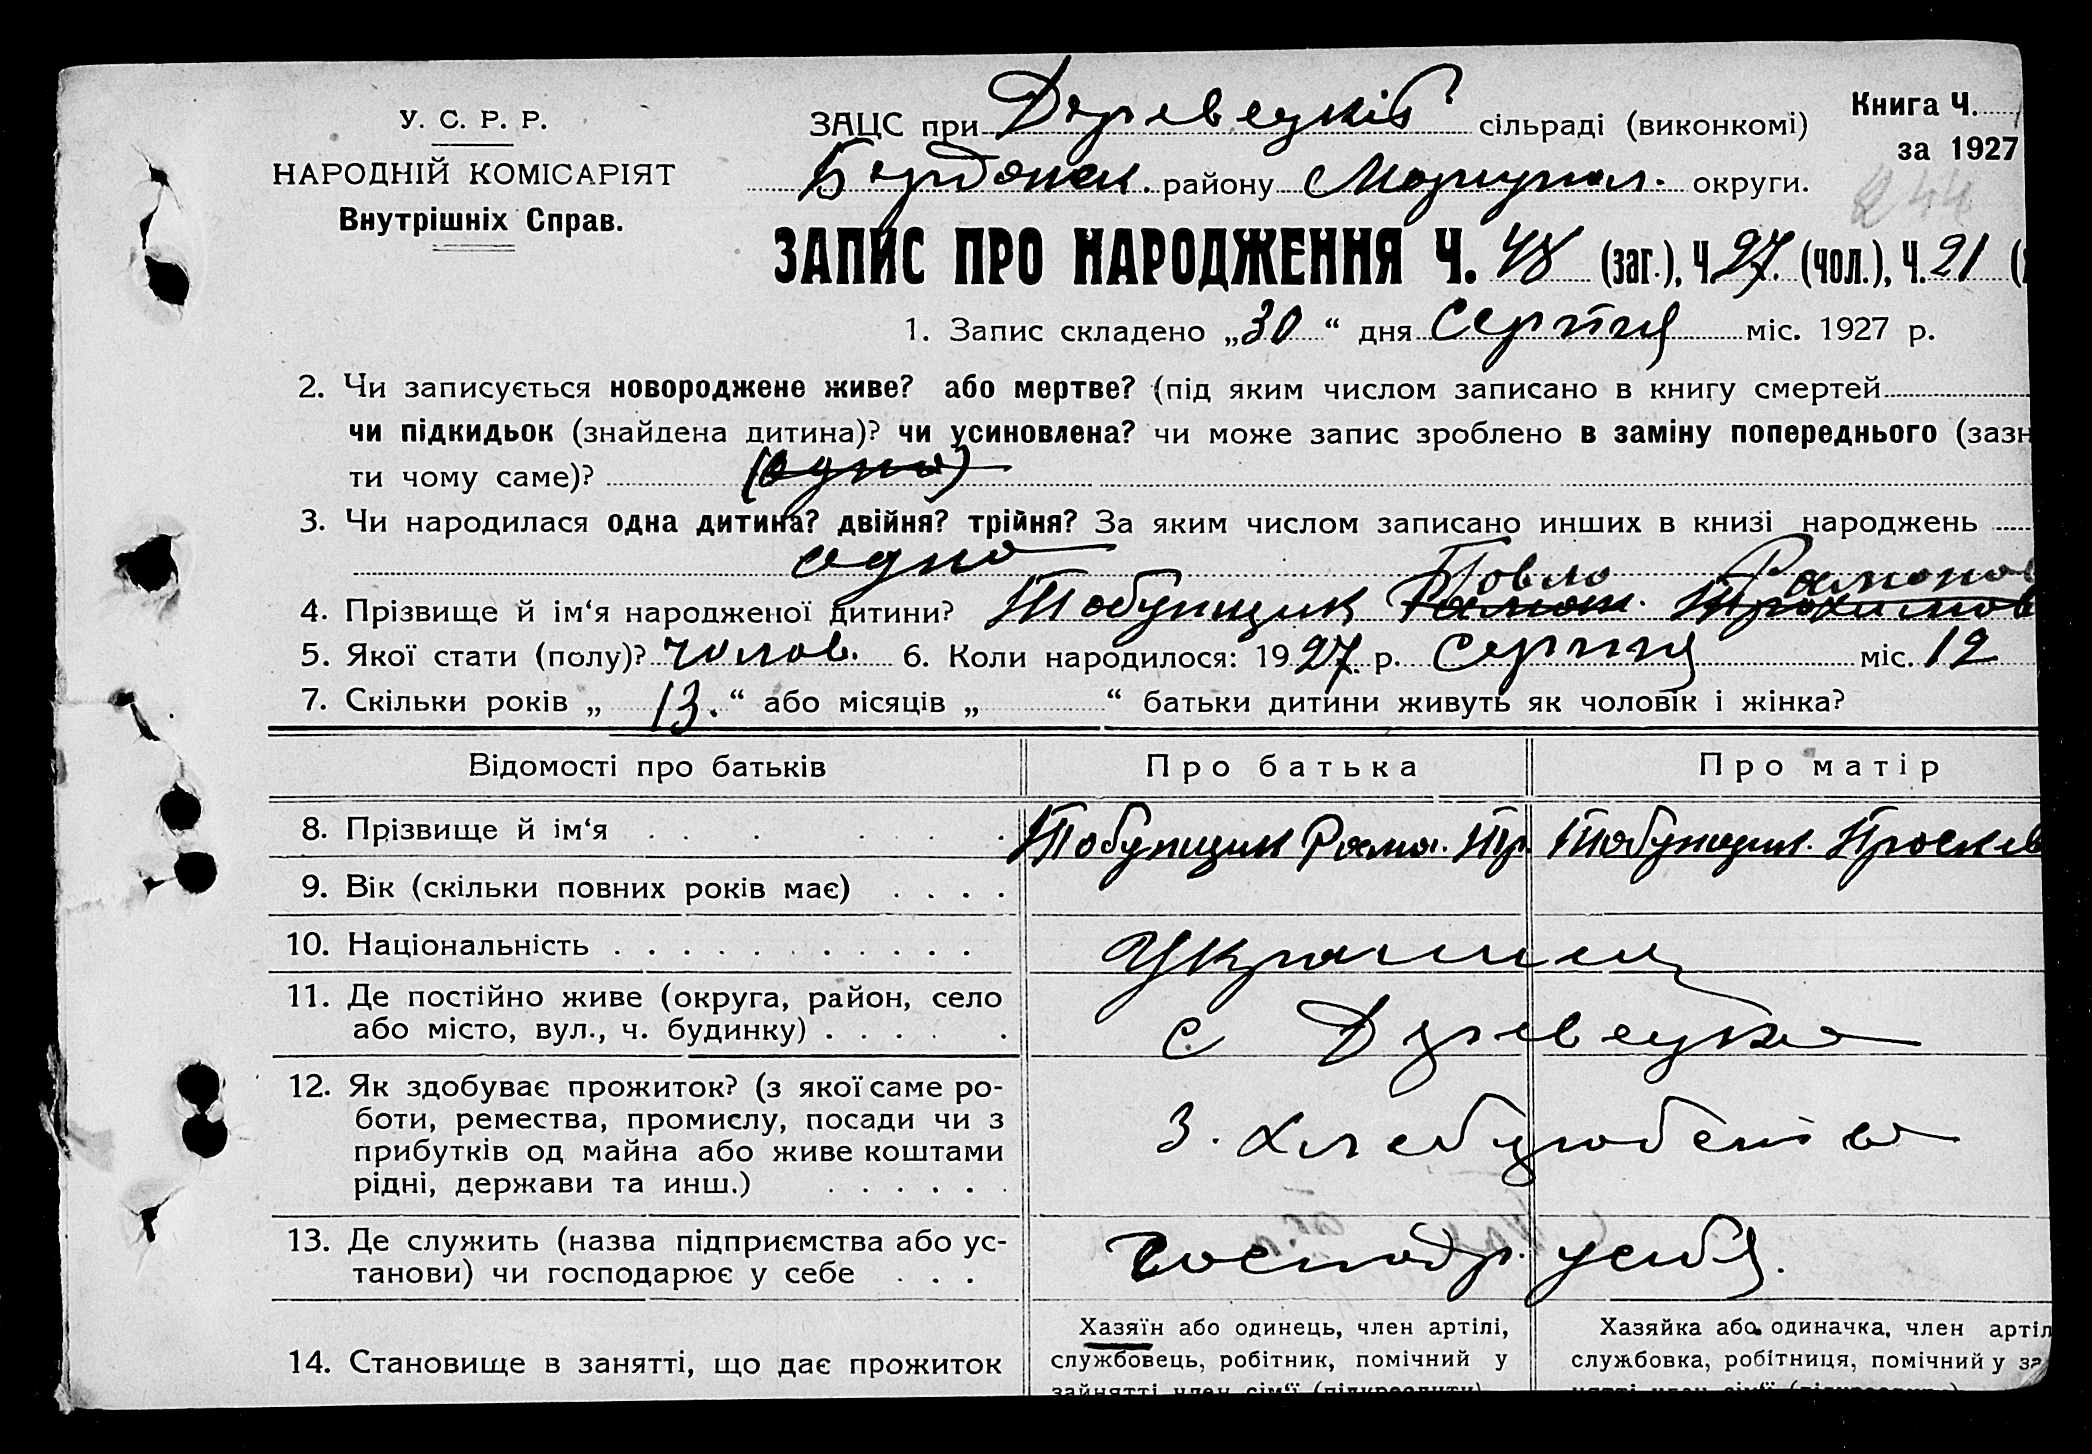 У. С. Р. Р.
НАРОДНІЙ КОМІСАРІЯТ
Внутрішніх Справ.
ЗАЦС при Деревецкій сільраді (виконкомі)
Бердянск. району Мариупол. округи.
Книга Ч.
за 1927
244
ЗАПИС ПРО НАРОДЖЕННЯ Ч. 48 (заг.), Ч. 27. (чол.), Ч. 21
1. Запис складено „30“ дня Серпня міс. 1927 р.
2. Чи записується новороджене живе? або мертве? (під яким числом записано в книгу смертей
чи підкидьок (знайдена дитина)? чи усиновлена? чи може запис зроблено в заміну попереднього (зазн
ти чому саме)? (одно)
3. Чи народилася одна дитина? двійня? трійня? За яким числом записано инших в книзі народжень
одно
Павло Романов
4. Прізвище й ім‘я народженої дитини? Табунщик Роман. Трохимов
5. Якої стати (полу)? чолов. 6. Коли народилося: 1927 р. Серпня міс. 12
7. Скільки років „13.“ або місяців „ “ батьки дитини живуть як чоловік і жінка?
Відомості про батьків Про батька Про матір
8. Прізвище й ім‘я Табунщик Рома. Тр. Табунщик. Проскев
9. Вік (скільки повних років має)
10. Національність Украинец
11. Де постійно живе (округа, район, село
або місто, вул., ч. будинку) с Деревецка
12. Як здобуває прожиток? (з якої саме ро-
боти, ремества, промислу, посади чи з
прибутків од майна або живе коштами
рідні, держави та инш.) З. Хлебуробства
13. Де служить (назва підприємства або ус-
танови) чи господарює у себе господр. у себя.
14. Становище в занятті, що дає прожиток
Хазяїн або одинець, член артілі,
службовець, робітник, помічний у
зайнятті член сім‘ї (підкреслити)
Хазяйка або одиначка, член артіл
службовка, робітниця, помічний у за
нятті член сім‘ї